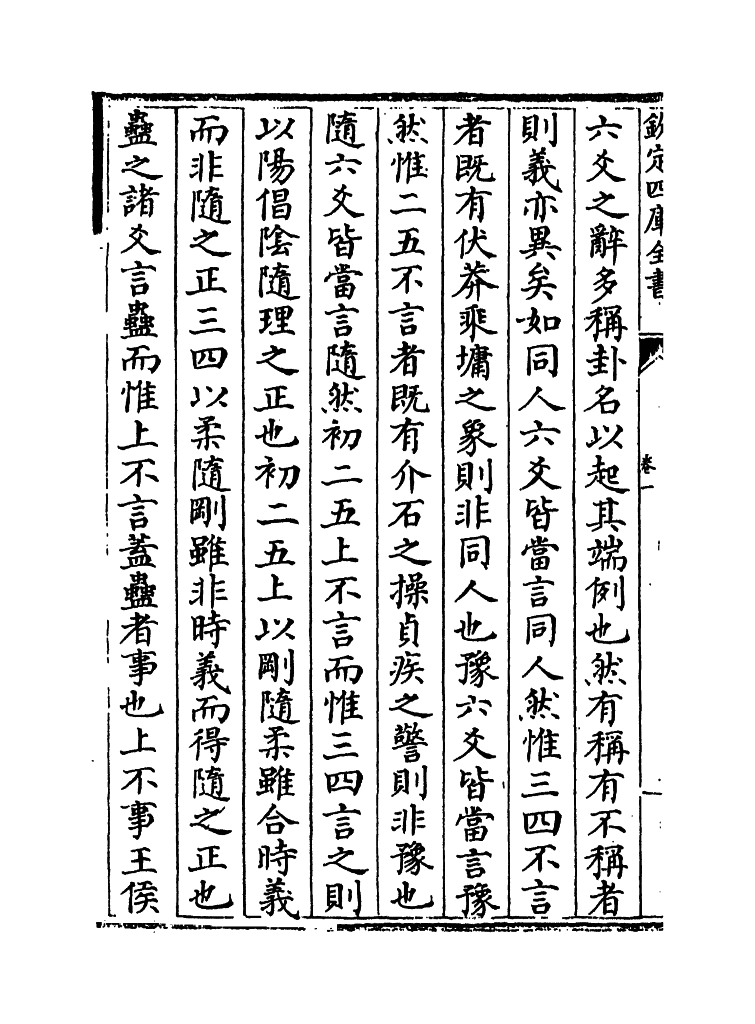 欽定四庫全書
卷一
一
六爻之辭多稱卦名以起其端例也然有稱有不稱者
則義亦異矣如同人六爻皆當言同人然惟三四不言
者既有伏莽乘墉之象則非同人也豫六爻皆當言豫
然惟二五不言者既有介石之操貞疾之警則非豫也
隨六爻皆當言隨然初二五上不言而惟三四言之則
以陽倡陰隨理之正也初二五上以剛隨柔雖合時義
而非隨之正三四以柔隨剛雖非時義而得隨之正也
蠱之諸爻言蠱而惟上不言蓋蠱者事也上不事王侯